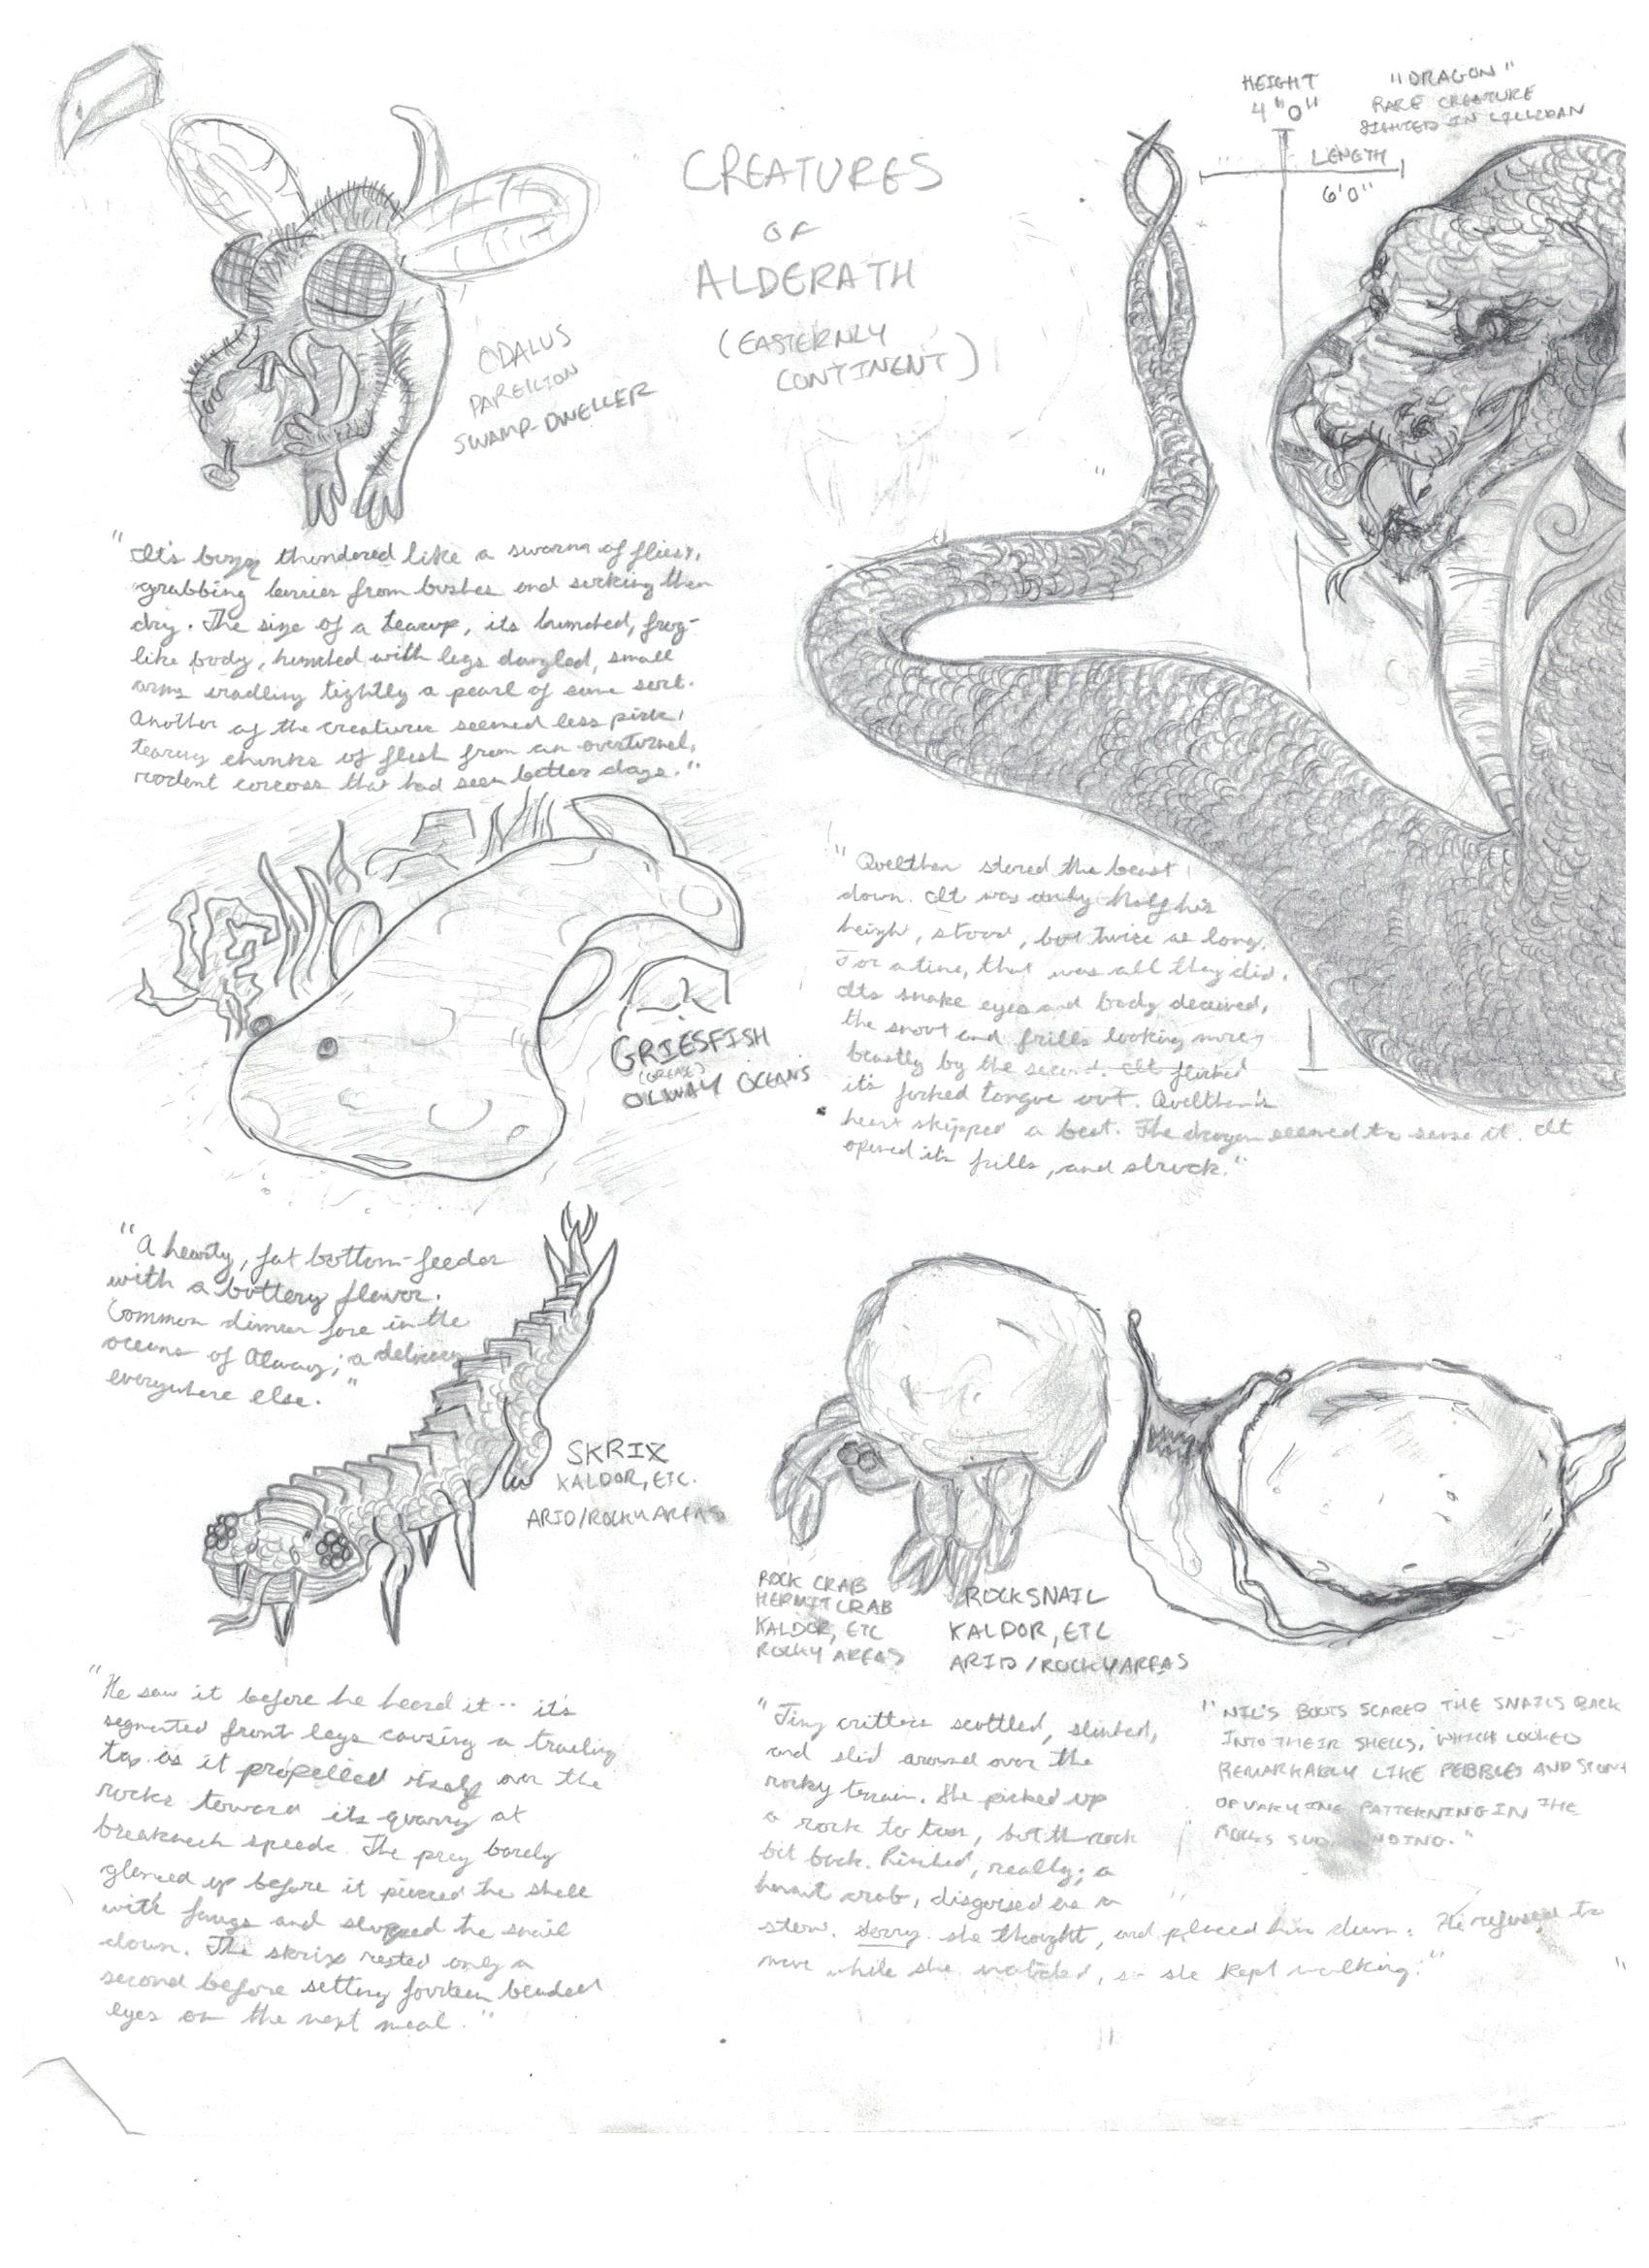 CREATURES
OF
ALDERATH
(EASTERNLY
CONTINENT)
HEIGHT
4"0"
"DRAGON"
RARE CREATURE
SIGHTED IN
LENGTH
6'0"
ODALUS
SWAMP-DWELLER
"It's buzz thundered like a swarm of flies,
grabbing berries from bushes and sucking them
dry. The size of a teacup, its hunched, frog-
like body, hunched with legs dangled, small
arms cradling tightly a pearl of some sort.
Another of the creatures seemed less picky,
tearing chunks of flesh from an overturned,
rodent carcass that had seen better days."
GRIESFISH
(GREASE)
OCEANS
"A hearty, fat bottom-feeder
with a buttery flavor.
Common dinner fare in the
oceans of Alway; a delicacy
everywhere else."
"Quelthan stared the beast
down. It was only half his
heigh, stood, but twice as long.
For a time, that was all they did.
Its snake eyes and body deceived,
the snout and frills looking more
beastly by the second. It flicked
it's forked tongue out. Quelthan's
heart skipped a beat. The dragon seemed to sense it. It
opened it's frills, and struck."
SKRIX
KALDOR, ETC.
ARID/ROCKY AREAS
"He saw it before he heard it-- it's
segmented front legs causing a
tap as it propelled itself over the
rocks toward its quarry at
breakneck speeds. The prey barely
glanced up before it pierced the shell
with fangs and slurped the snail
down. The skrix rested only a
second before setting fourteen beaded
eyes on the next meal."
ROCK CRAB
HERMIT CRAB
KALDOR, ETC
ROCKY AREAS
ROCKSNAIL
KALDOR, ETC
ARID/ROCKY AREAS
"Tiny critters scuttled, slinked,
and slid around over the
rocky terrain. She picked up
a rock to toss, but the rock
bit back. Pinched, really; a
hermit crab, disguised as a
stone. Sorry. she thought, and placed him down. He refused to
move while she watched, so she kept walking."
"NIL'S BOOTS SCARED THE SNAILS BACK
INTO THEIR SHELLS, WHICH LOOKED
REMARKABLY LIKE PEBBLES AND
OF VARYING PATTERNING IN THE
ROCKS